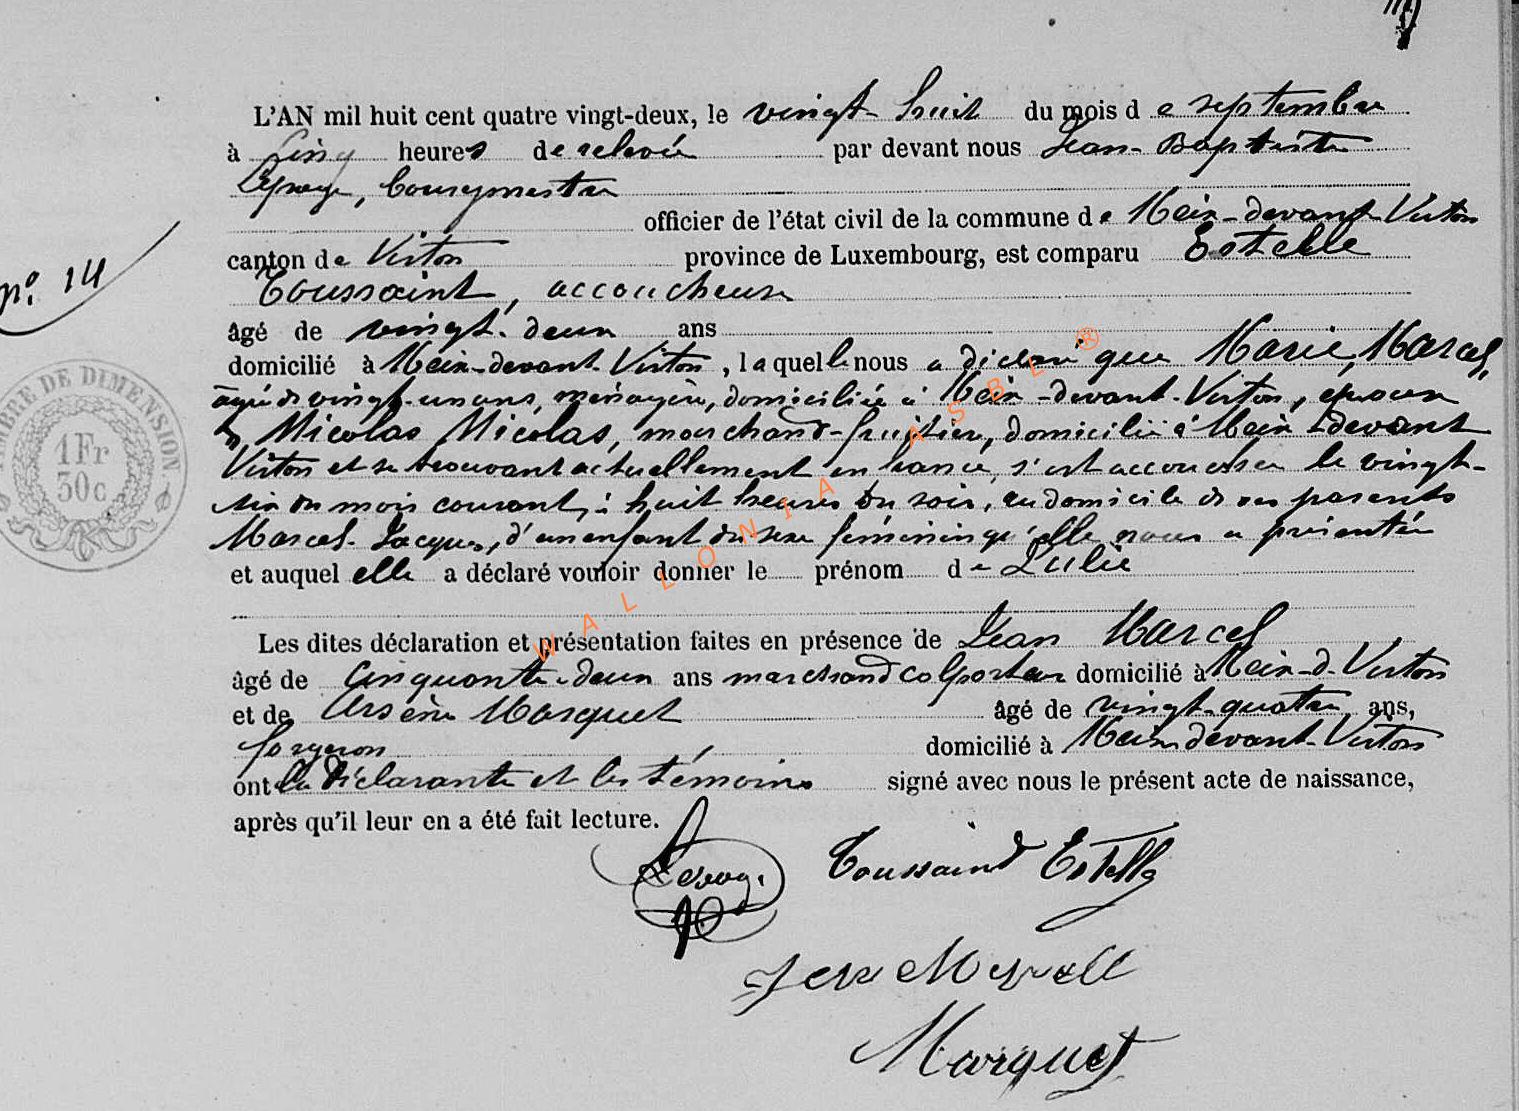 L'AN mil huit cent quatre vingt-deux, le vingt-huit du mois de septembre
à cinq heures de relevée par devant nous Jean-Baptiste
Lepage, bourgmestre
officier de l'état civil de la commune de Meix-devant-Virton
canton de Virton province de Luxembourg, est comparu Estelle
n° 14
Toussaint, accoucheuse
âgé de vingt-deux ans
domicilié à Meix-devant-Virton, laquelle nous a déclaré que Marie Marcel,
âgée de vingt-un ans, ménagère, domiciliée à Meix-devant-Virton, épouse
de Nicolas Nicolas, marchand-fruitier, domicilié à Meix-devant
Virton et se trouvant actuellement en france, s'est accouchée le vingt-
six du mois courant, à huit heures du soir, au domicile de ses parents
Marcel-Jacques, d'un enfant du sexe féminin qu'elle nous a présentée
et auquel elle a déclaré vouloir donner le prénom de Julie
Les dites déclaration et présentation faites en présence de Jean Marcel
âgé de cinquante-deux ans marchand colporteur domicilié à Meix-d-Virton
et de Arsène Marquet âgé de vingt-quatre ans,
forgeron domicilié à Meix-devant-Virton
ont la déclarante et les témoins signé avec nous le présent acte de naissance,
après qu'il leur en a été fait lecture.
Toussaint Estelle
Marquet
TIMBRE DE DIMENSION
1 Fr
50 c
WALLONIA ASBL ®